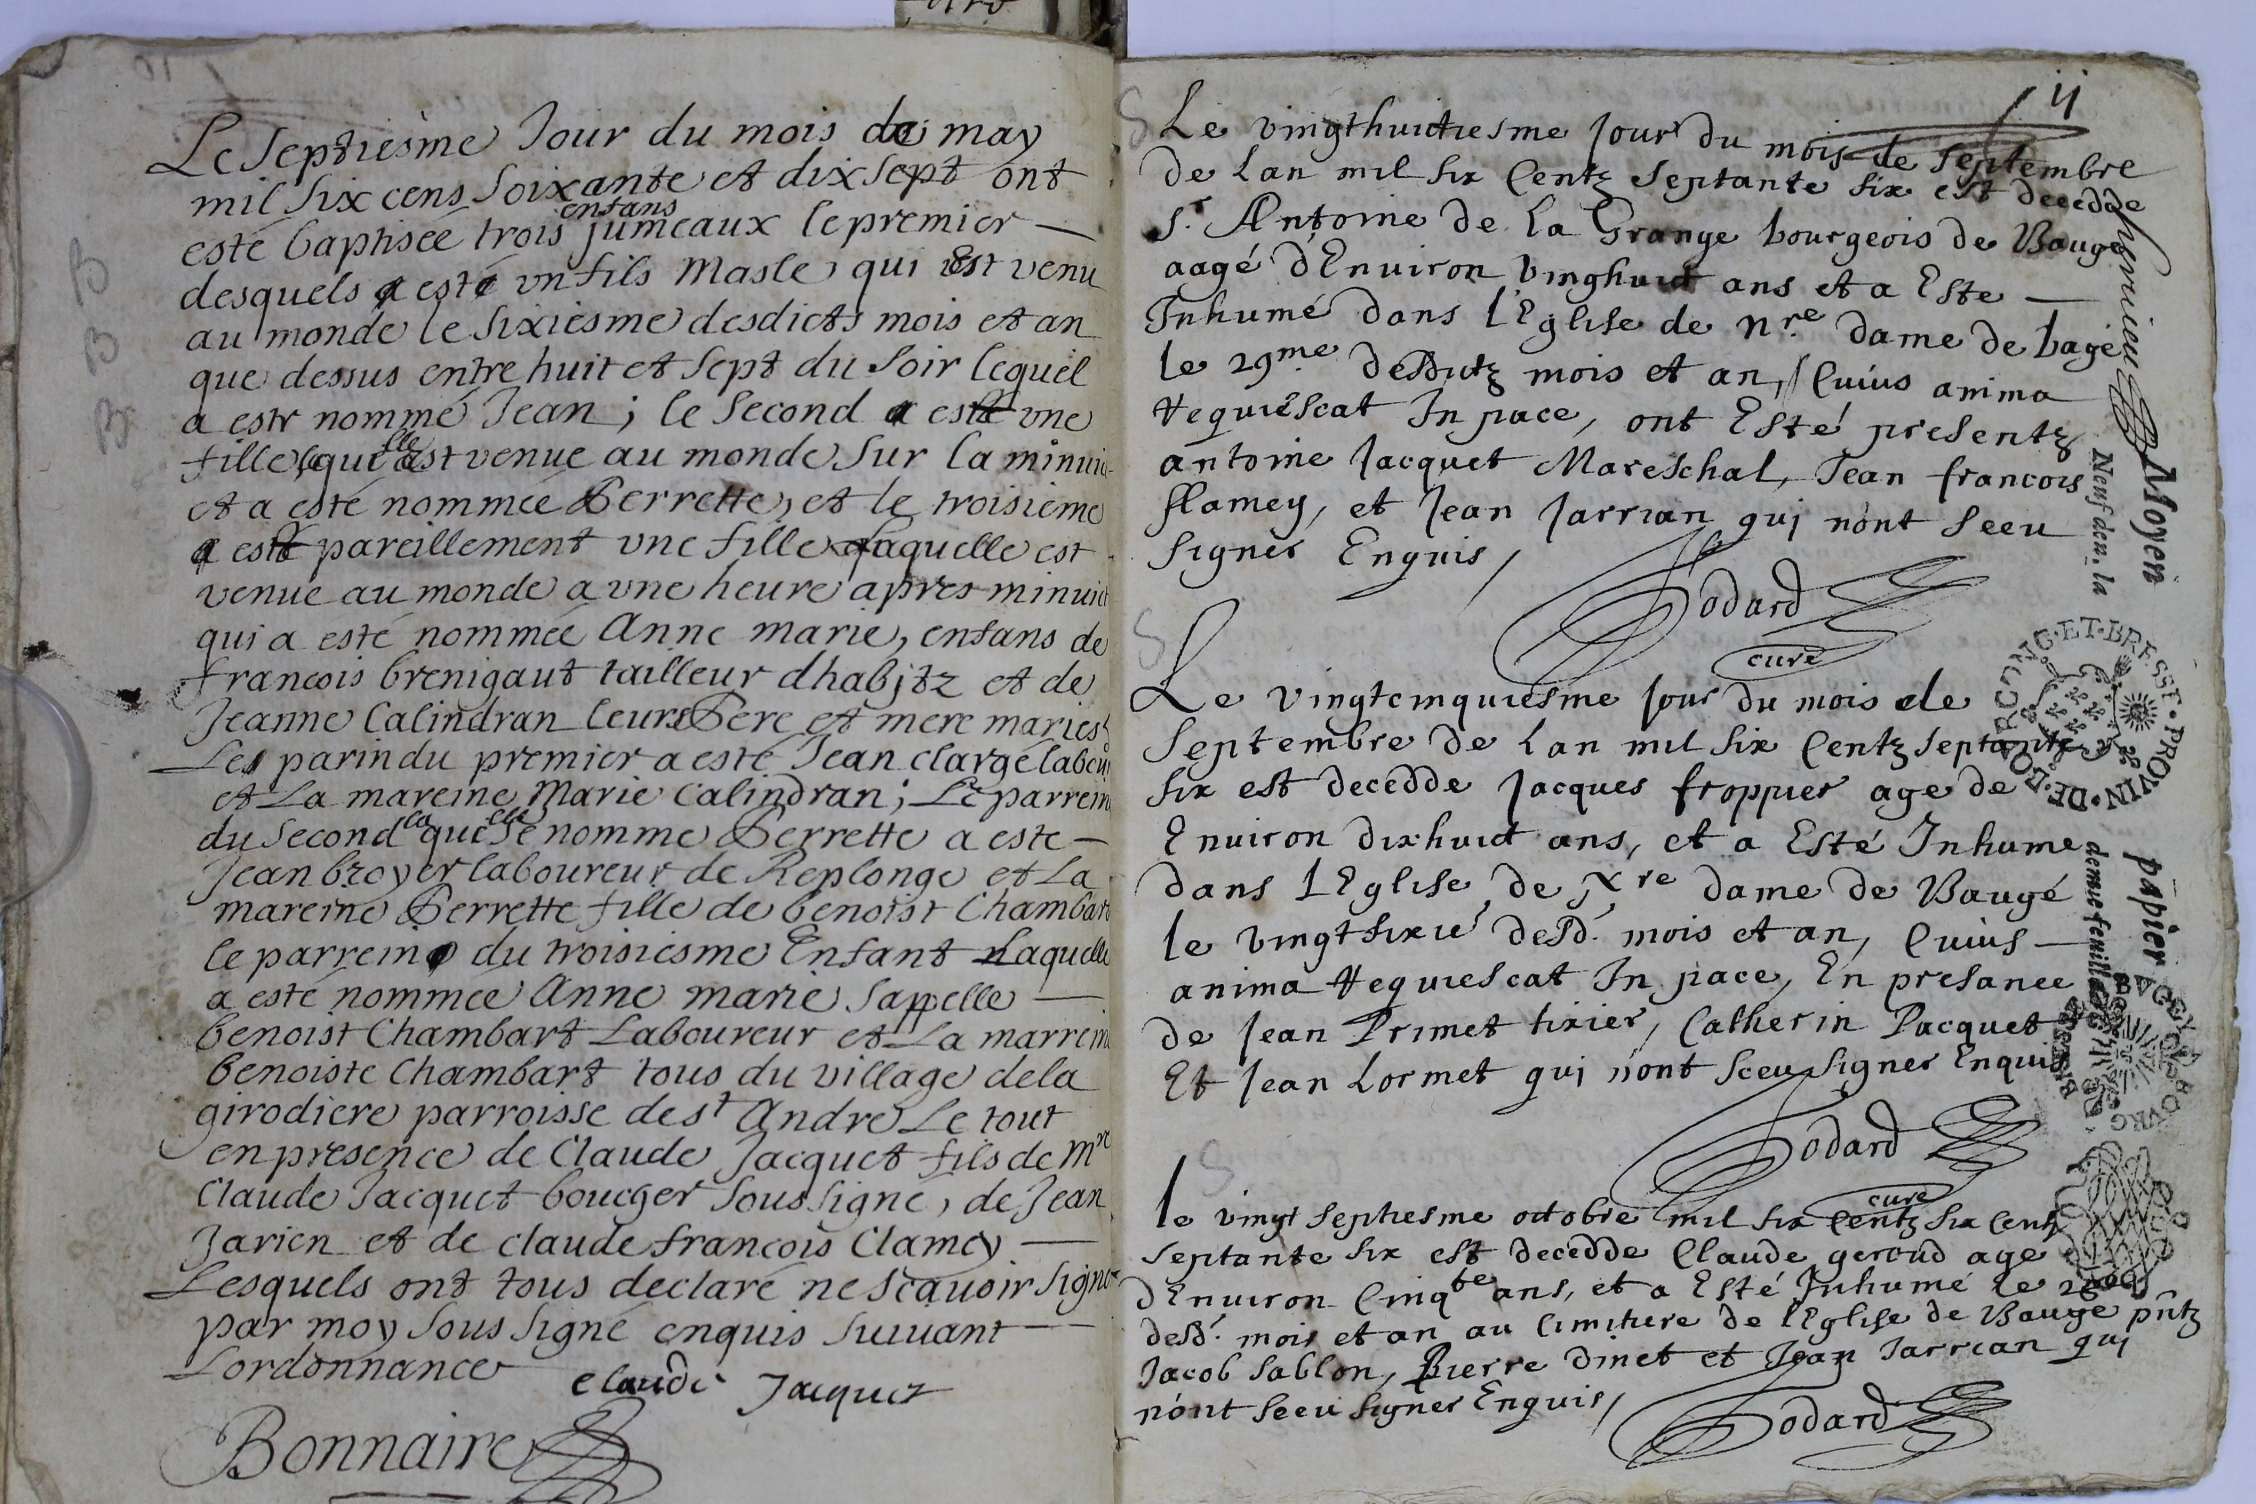 Le Septiesme Jour du mois de may
mil Six cens Soixante et dix sept ont
esté baptiseé trois enfans jumeaux le premier
desquels a esté vn fils Masle, qui est venu
au monde le Sixiesme desdicts mois et an
que dessus entre huit et Sept du Soir lequel
a este nommé Jean ; le Second a esté vne
fille laquelle est venue au monde Sur la minuict
et a esté nommeé Perrette, et le troisieme
a esté pareillement vne fille laquelle est
venue au monde a vne heure apres minuict
qui a esté nommeé Anne marie, enfans de
francois brenigaut tailleur dhabjtz et de
Jeanne Calindran leurs Pere et mere mariés
Les parin du premier a esté Jean clargé labour
et La mareine Marie Calindran ; Le parrein
du Second laquelle Se nomme Perrette a este
Jean broyer laboureur de Replonge et La
mareine Perrette fille de benoist Chambart
le parrein du troisiesme Enfant Laquelle
a esté nommeé Anne marie Sappelle
benoist Chambart Laboureur et La marrein
benoiste Chambart tous du village dela
girodiere parroisse de st Andre Le tout
en presence de Claude Jacquet fils de Mre
Claude Jacquet boucher Soussigne, de Jean
Jarien et de claude francois Clamey
Lesquels ont tous declaré ne Scauoir Signer
par moy Sous Signé enquis Suiuant
Lordonnance
claude Jacquet
Bonnaire
11
Le vingthuictiesme Jour du mois de Septembre
de Lan mil six Centz septante six est decedde
Sr. Antoine de La Grange bourgeois de Bauge
aagé d'Enuiron vinghuict ans et a Este
Inhumé dans l'Eglise de Nre dame de bagé
le 29me desditz mois et an, Cuius anima
requiescat In pace, ont Esté presentz
antoine Jacquet Mareschal, Jean francois
flamey, et Jean Jarrian quj nont sceu
signer Enquis,
Godard
curé
Le vingtcinquiesme Jour du mois de
Septembre de Lan mil six Centz septante
six est decedde Jacques froppier age de
Enuiron dixhuict ans, et a Esté Inhume
dans L Eglise de Nre dame de Baugé
le vingtsixie desd. mois et an, Cuius
anima requiescat In pace, En presance
de Jean Primet tixier, Catherin Pacquet
Et Jean Lormet quj nont sceu signer Enquis
Godard
curé
le vingt septiesme octobre mil six Centz six Centz
septante six est decedde Claude geroud age
dEnuiron Cinqte ans, et a Esté Inhumé le
desd. mois et an au Cimitiere de l'Eglise de Bauge pntz
Jacob Sablon, Pierre dinet et Jean Jarrian quj
nont sceu signer Enquis,
Godard
Moyen papier
Neuf den. la demie feuille
BOVRG